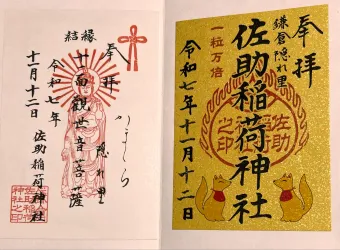 奉拝
鎌倉隠れ里
佐助稲荷神社
一粒万倍
令和七年十一月十二日
佐助稲荷之印
結縁
奉拝
かまくら
隠れ里
十一面観世音菩薩
令和七年
十一月十二日
佐助稲荷神社
佐助稲荷神社之印